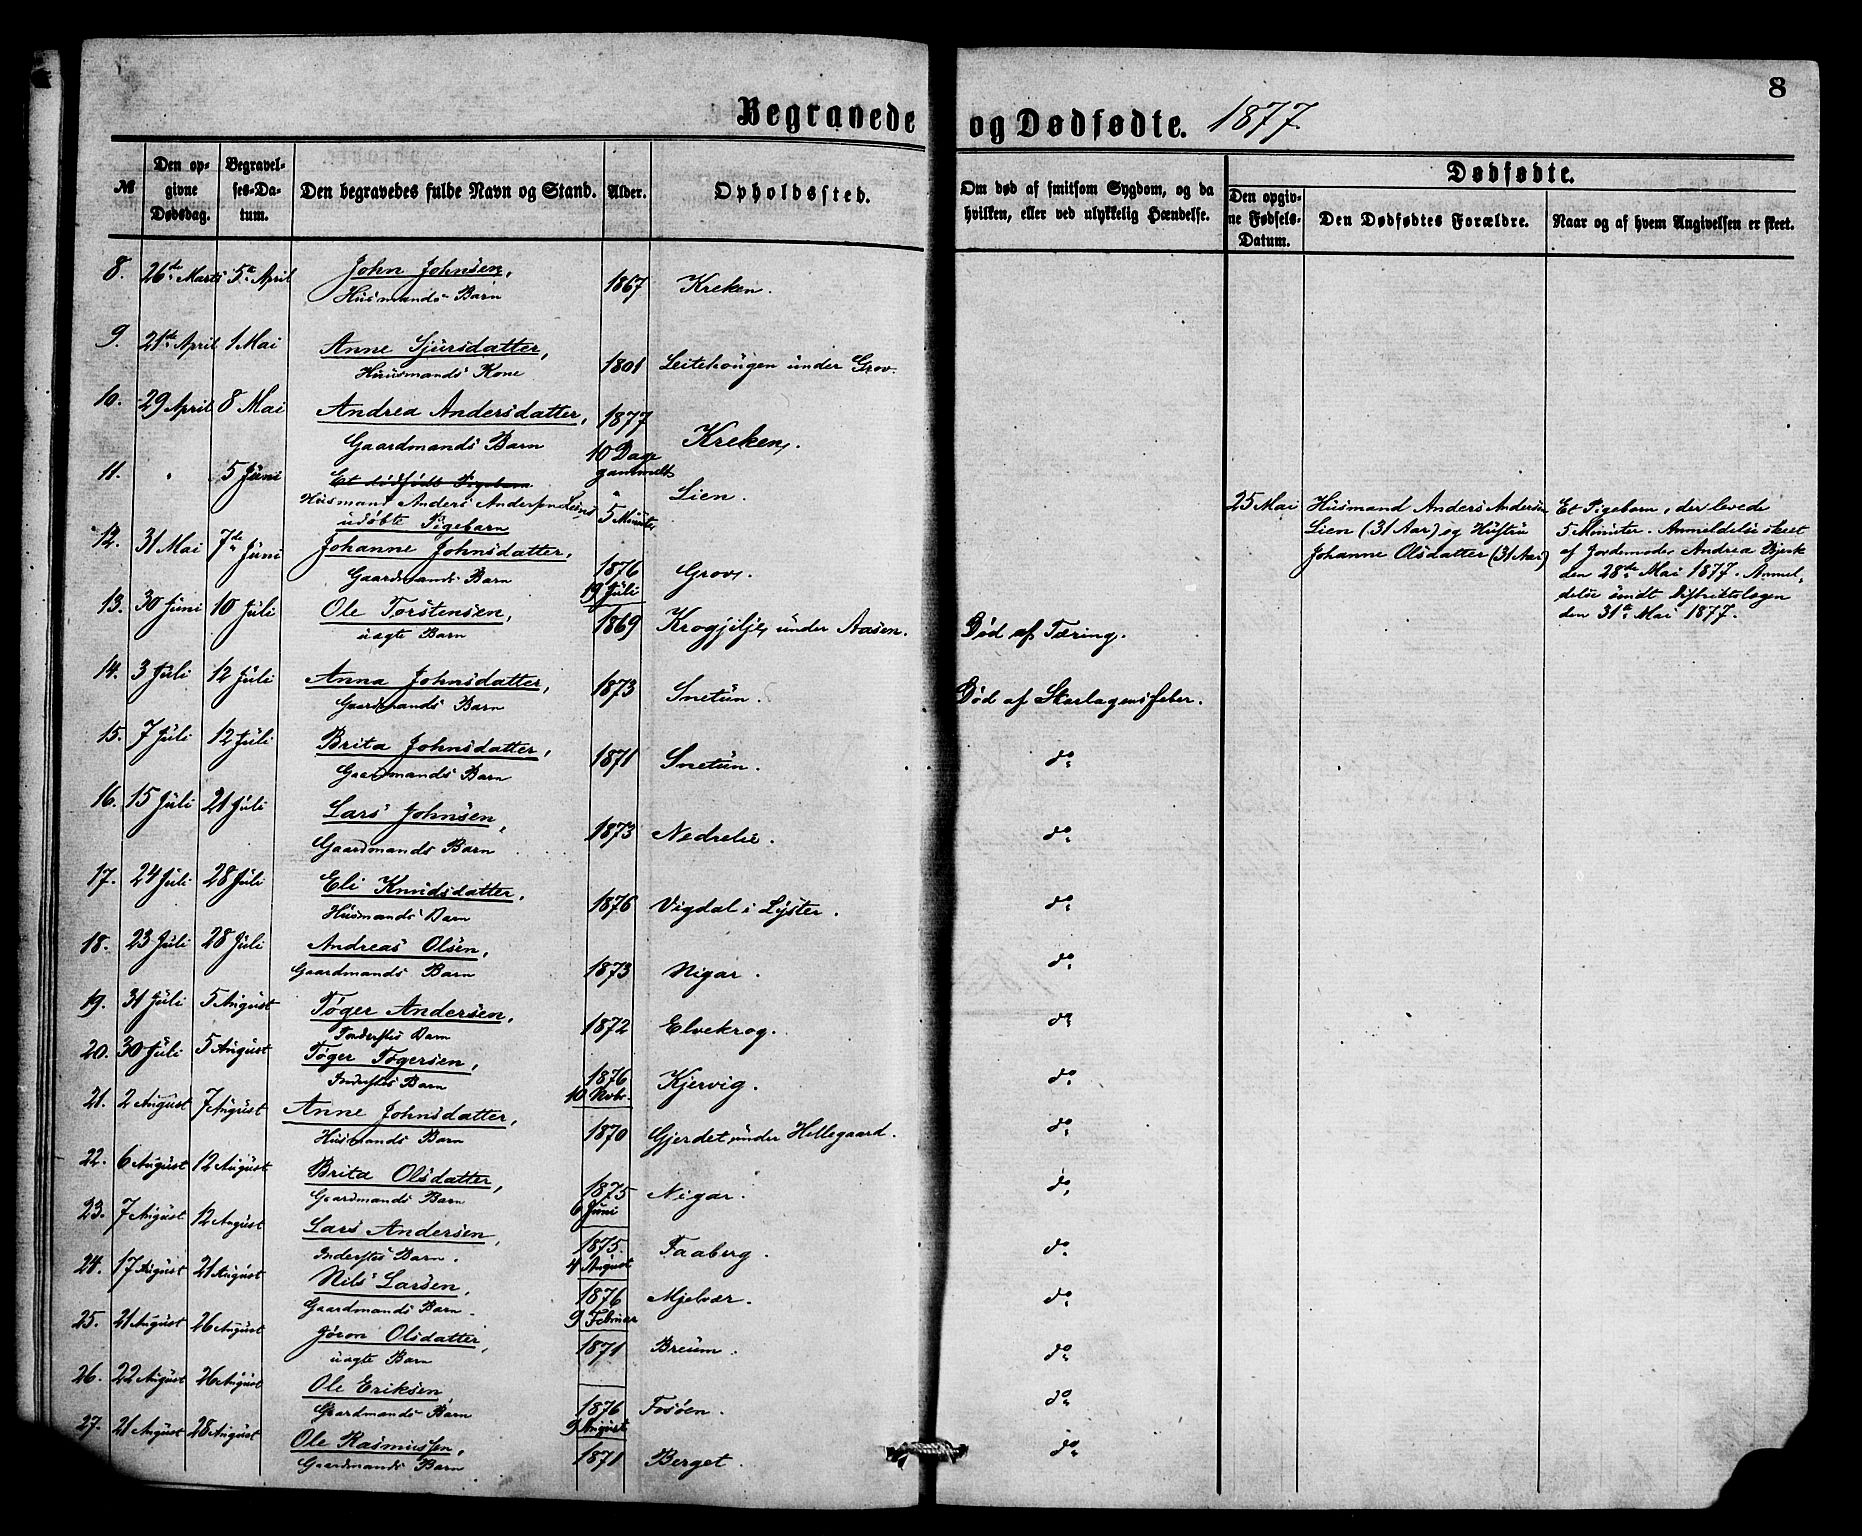 8
Begravede og Dødfødte. 1877.
№
Den opgivne Dødsdag.
Begravelses-Datum.
Den begravedes fulde Navn og Stand.
Alder.
Opholdssted.
Om død af smitsom Sygdom, og da hvilken, eller ved ulykkelig Hændelse.
Dødfødte.
Den opgivne Fødsels-Datum.
Den Dødfødtes Forældre.
Naar og af hvem Angivelsen er skeet.
8. 26de Marts 5te April John Johnsen, 1867 Kreken.
Husmands Barn
9. 21de April 1 Mai Anne Sjursdatter, 1801 Leitehougen under Grov.
Huusmands Kone
10. 29 April 8 Mai Andrea Andersdatter, 1877 Kreken.
Gaardmands Barn 10 Dage gammelt
11. " 5 Juni Et dødfødt Pigebarn " Lien.
Husmand Anders Andersen Liens 5 Minuter
udøbte Pigebarn
25 Mai Husmand Anders Andersen
Lien (31 Aar) og Hustru
Johanne Olsdatter (31 Aar)
Et Pigebarn, der levede
5 Minuter. Anmeldelse skeet
af Jordemoder Andrea Bjerk
den 28de Mai 1877. Anmel-
delse sendt Distriktslægen
den 31te Mai 1877.
12. 31 Mai 7de Juni Johanne Johnsdatter, 1876 Grov.
Gaardmands Barn 19 Juli
13. 30 Juni 10 Juli Ole Torstensen, 1869 Krogjilje under Aasen. Død af Tæring.
uægte Barn
14. 3 Juli 12 Juli Anna Johnsdatter, 1873 Snetun. Død af Skarlagensfeber.
Gaardmands Barn
15. 7 Juli 12 Juli Brita Johnsdatter, 1871 Snetun. do
Gaardmands Barn
16. 15 Juli 21 Juli Lars Johnsen, 1873 Nedrelie. do
Gaardmands Barn
17. 24 Juli 28 Juli Eli Knudsdatter, 1876 Vigdal i Lyster. do
Husmands Barn
18. 23 Juli 28 Juli Andreas Olsen, 1873 Nigar. do
Gaardmands Barn
19. 31 Juli 5 August Tøger Andersen, 1872 Elvekrog. do
Inderstes Barn
20. 30 Juli 5 August Tøger Tøgersen, 1876 Kjervig. do
Inderstes Barn 10 Novbr.
21. 2 August 7 August Anne Johnsdatter, 1870 Gjerdet under Hillegaard. do
Husmands Barn
22. 6 August 12 August Brita Olsdatter, 1875 Nigar. do
Gaardmands Barn 6 Juni
23. 7 August 12 August Lars Andersen, 1875. Faaberg. do
Inderstes Barn. 4 August
24. 17 August 21 August Nils Larsen, 1876 Mjelvær. do
Gaardmands Barn. 9 Februar
25. 21 August 26 August Jøron Olsdatter, 1871 Breum. do
uægte Barn
26. 22 August 26 August Ole Eriksen, 1876 Fosøen. do
Gaardmands Barn 9 August
27. 21 August 28 August Ole Rasmussen, 1871 Berget. do
Gaardmands Barn